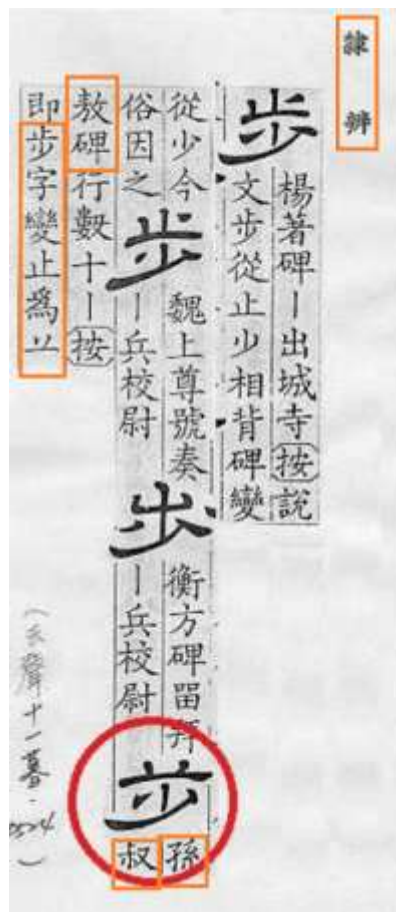 隸辨
步
楊著碑丨出城寺按說
文步從止少相背碑變
從少今
俗因之
步
魏上尊號奏
丨兵校尉
步
衡方碑畱拜
丨兵校尉
步
孫
叔
敖碑行數十丨按
即步字變止爲
(去聲十一暮·